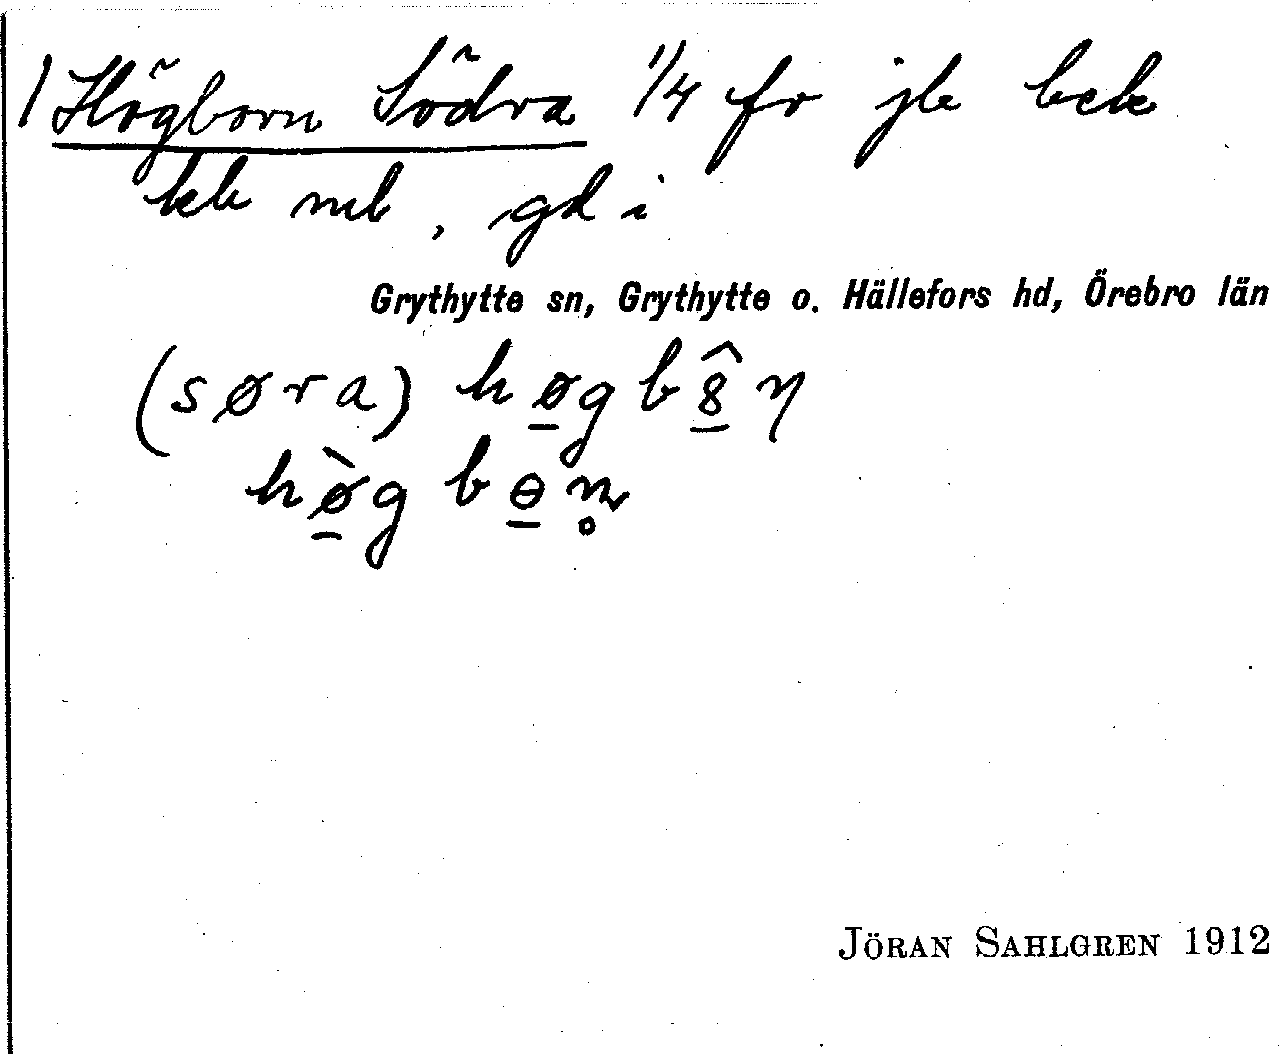 1 Högborn Södra 1/4 fr jb bek
kb mb, gd i
Grythytte sn, Grythytte o. Hällefors hd, Örebro län
(søra) hø̲gb8̲̂ŋ
hø̲̀gbɵ̲n̥
JÖRAN SAHLGREN 1912